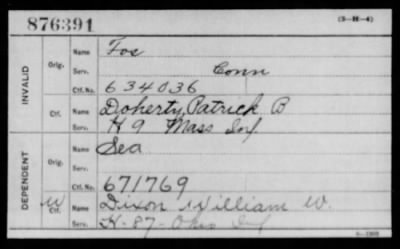 876391
(3-H-4)
INVALID
Orig.
Name Fox
Serv. Conn
Ctf. No. 634036
Ctf.
Name Doherty, Patrick B
Serv. K 9 Mass Inf
DEPENDENT
Orig.
Name Sea
Serv.
Ctf. No. 671769
W Ctf.
Name Dixon William W.
Serv. K-87-Ohio Inf